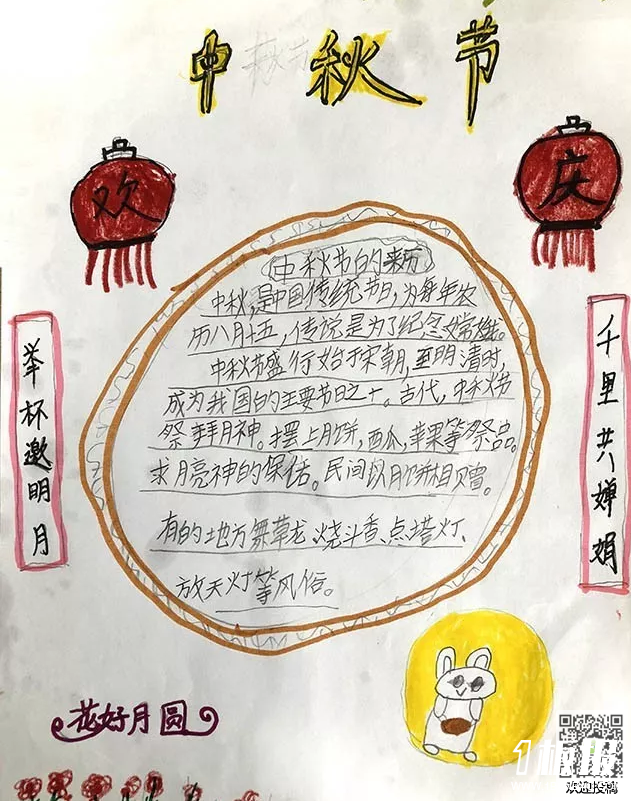 中秋节
欢
庆
举杯邀明月
千里共婵娟
中秋节的来历
中秋,是中国传统节日,为每年农
历八月十五,传说是为了纪念嫦娥。
中秋节盛行始于宋朝,至明清时,
成为我国的主要节日之一。古代,中秋节
祭拜月神。摆上月饼,西瓜,苹果等祭品。
求月亮神的保佑。民间以月饼相赠。
有的地方舞草龙、烧斗香、点塔灯、
放天灯等风俗。
花好月圆
欢迎投稿